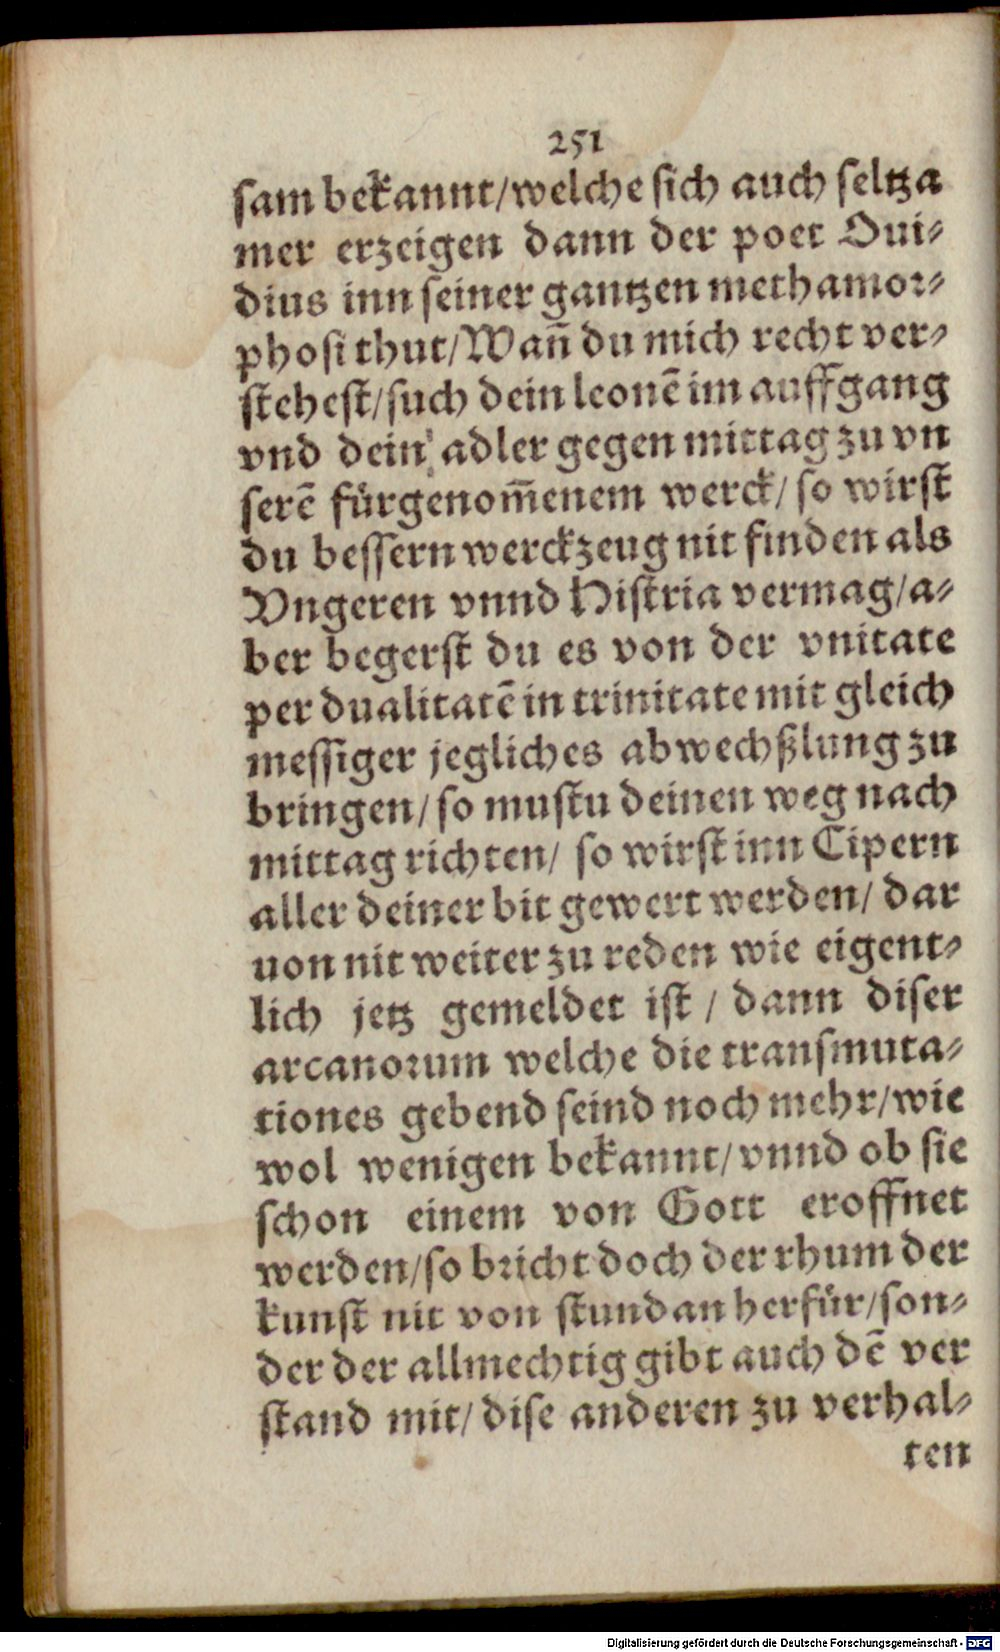 251
ſam bekannt/welche ſich auch ſeltza
mer erzeigen dann der poet Oui⸗
dius inn ſeiner gantzen methamor⸗
phoſi thut/Wañ du mich recht ver⸗
ſteheſt/ſuch dein leonē im auffgang
vnd dein adler gegen mittag zu vn
ſerē fürgenom̄enem werck/ ſo wirſt
du beſſern werckzeug nit finden als
Vngeren vnnd Hiſtria vermag/a⸗
ber begerſt du es von der vnitate
per dualitatē in trinitate mit gleich
meſſiger jegliches abwechßlung zu
bringen/ ſo muſtu deinen weg nach
mittag richten/ ſo wirſt inn Cipern
aller deiner bit gewert werden/ dar
uon nit weiter zu reden wie eigent⸗
lich jetz gemeldet iſt / dann diſer
arcanorum welche die tranſmuta⸗
tiones gebend ſeind noch mehr/wie
wol wenigen bekannt/ vnnd ob ſie
ſchon einem von Gott eroffnet
werden/ſo bricht doch der rhum der
kunſt nit von ſtund an herfür/ſon⸗
der der allmechtig gibt auch dē ver
ſtand mit/ diſe anderen zu verhal⸗
ten
Digitalisierung gefördert durch die Deutsche Forschungsgemeinschaft - DFG